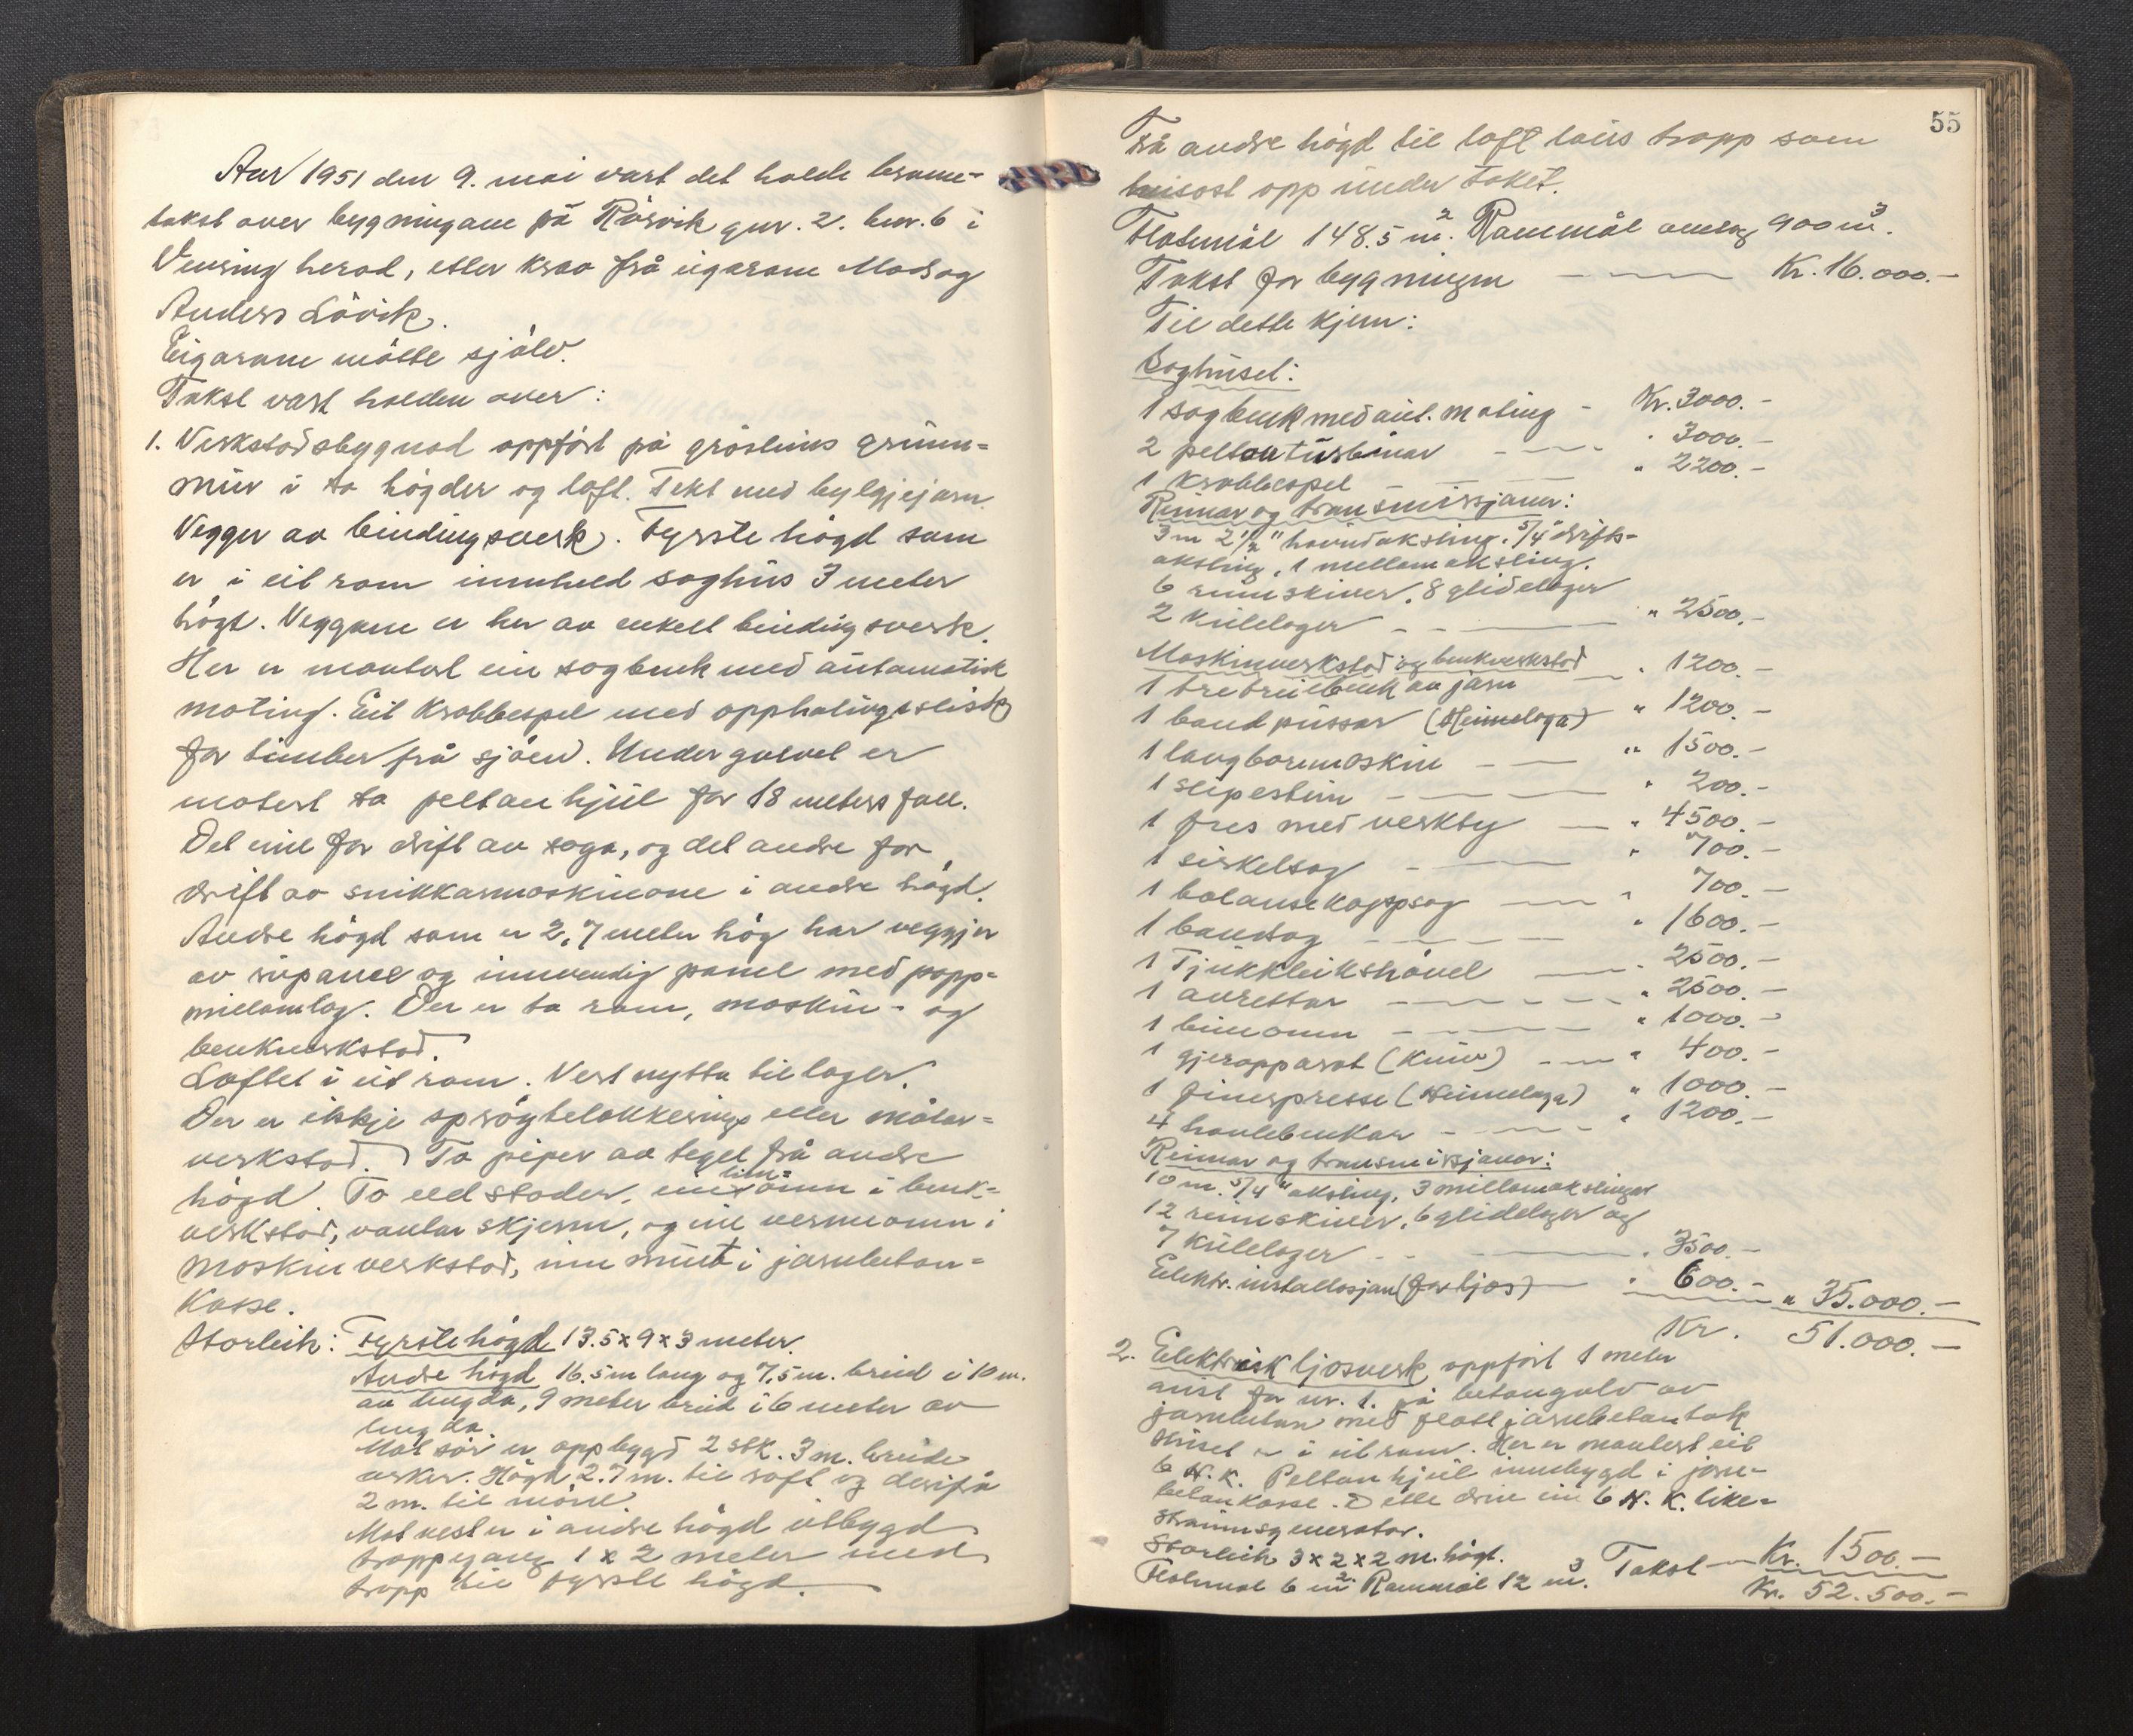 Aar 1951 den 9. mai vart det halde branne-
takst over bygningane på Rörvik gnr. 2. bnr. 6 i
herad, etter krav frå eigarane Mads og
Anders Lövik.
Eigarane mötte sjölv.
Takst vart halden over:
1. Verkstadsbygnad oppfört på gråsteins grunn-
mur i to högder og loft. Tekt med bylgjejarn.
Vegger av bindingsverk. Fyrste högd som
er i eit rom innheld saghus 3 meter
högt. Veggane er her av enkelt bindingsverk.
Her er montert ein sagbenk med automatisk
mating. Eit Krabbespel med opphalingsslisk
for timber frå sjöen. Under golvet er
motert to peltonhjul for 18 meters fall.
Det eine for drift av saga, og det andre for
drift av snikkarmaskinane i andre högd.
Andre högd som er 2,7 meter hög har veggjer
av supanel og innvendig panel med papp-
millomlag. Der er to rom, maskin- og
benkverkstad.
Loftet i eit rom. Vert nytta til lager.
Der er ikkje spröytelakkerings eller målar-
verkstad. To piper av tegel frå andre
högd. To eldstader, ein lim-omn i benk-
verkstad, vantar skjerm, og ein varmeomn i
maskinverkstad, inn murt i jarnbeton-
kasse.
Storleik: Fyrste högd 13.5 x 9 x 3 meter.
Andre högd 16.5 m lang og 7,5 m. breid i 10 m.
av lengda, 9 meter breid i 6 meter av
lengda.
Mot sör er oppbygd 2 stk. 3 m. breide
arker. Högd 2.7 m. til raft og derifrå
2 m. til möne.
Mot vest er i andre högd utbygd
trappegang 1 x 2 meter med
trapp til fyrste högd.
55
Frå andre högd til loft laus trapp som
heisast opp under taket.
Flatemål 148.5 m². Rommål omlag 900 m³.
Takst for bygningen Kr. 16.000.-
Til dette kjem:
Saghuset:
1 sagbenk med aut. mating - Kr. 3000.-
2 pelton turbinar - " 3000.-
1 Krabbespel " 2200.-
Reimar og transmisjonar:
3 m 2 1/2" hovudaksling. 5/4" drifts-
aksling, 1 mellomaksling.
6 reimskiver. 8 glidelager
2 kulelager - - " 2500.-
Maskinverkstad og benkverkstad
1 tredreiebenk av jarn " 1200.-
1 band pussar (Heimelaga) " 1200.-
1 langboremaskin - " 1500.-
1 slipestein - " 200.-
1 fres med verkty - " 4500.-
1 sirkelsag - " 700.-
1 balansekappsag - " 700.-
1 bandsag - " 1600.-
1 Tjukkleikshövel - " 2500.-
1 avrettar - " 2500.-
1 limomn - " 1000.-
1 gjerapparat (Kniv) - " 400.-
1 finerpresse (Heimelaga) " 1000.-
4 hövlebenkar - " 1200.-
Reimar og transmisjonar:
10 m. 5/4" aksling, 3 millomakslingar
12 reimskiver, 6 glidelager og
7 kulelager - " 3500.-
Elektr. installasjon (for ljos) " 600.- " 35.000.-
Kr. 51.000.-
2. Elektrisk ljosverk oppfört 1 meter
aust for nr. 1. på betongolv av
jarnbeton med flatt jarnbetontak
Huset er i eit rom. Her er montert eit
6 H.K. Peltonhjul innebygd i jarn-
betonkasse. Dette driv ein 6 H.K. like-
straumsgenerator.
Storleik 3 x 2 x 2 m. högt.
Flatemål 6 m². Rommål 12 m³. Takst - Kr. 1500.-
Kr. 52.500.-